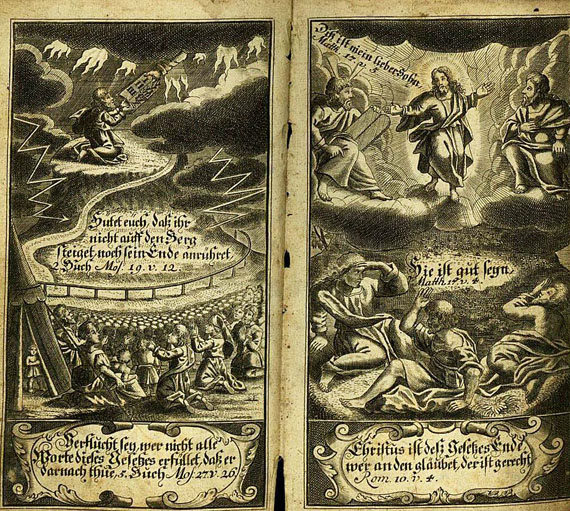 Hütet euch, daß ihr
nicht auff den Berg
steiget, noch sein Ende anrühret
2. Buch Mos. 19. v. 12.
Verflucht sey, wer nicht alle
Worte dieses Gesetzes erfüllet, daß er
darnach thue, 5. Buch Mos. 27. v. 26
Diß ist mein lieber Sohn.
Matth. 17. v. 5.
Hie ist gut seyn.
Matth. 17. v. 4.
Christus ist deß Gesetzes Ende,
wer an den gläubet, der ist gerecht
Rom. 10. v. 4.